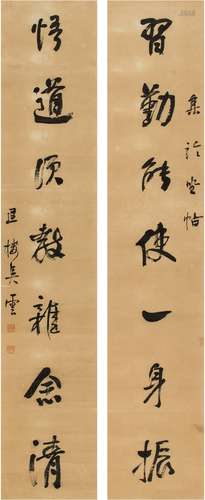 習勤能使一身振
集論坐帖
悟道須教雜念清
退樓吳雲